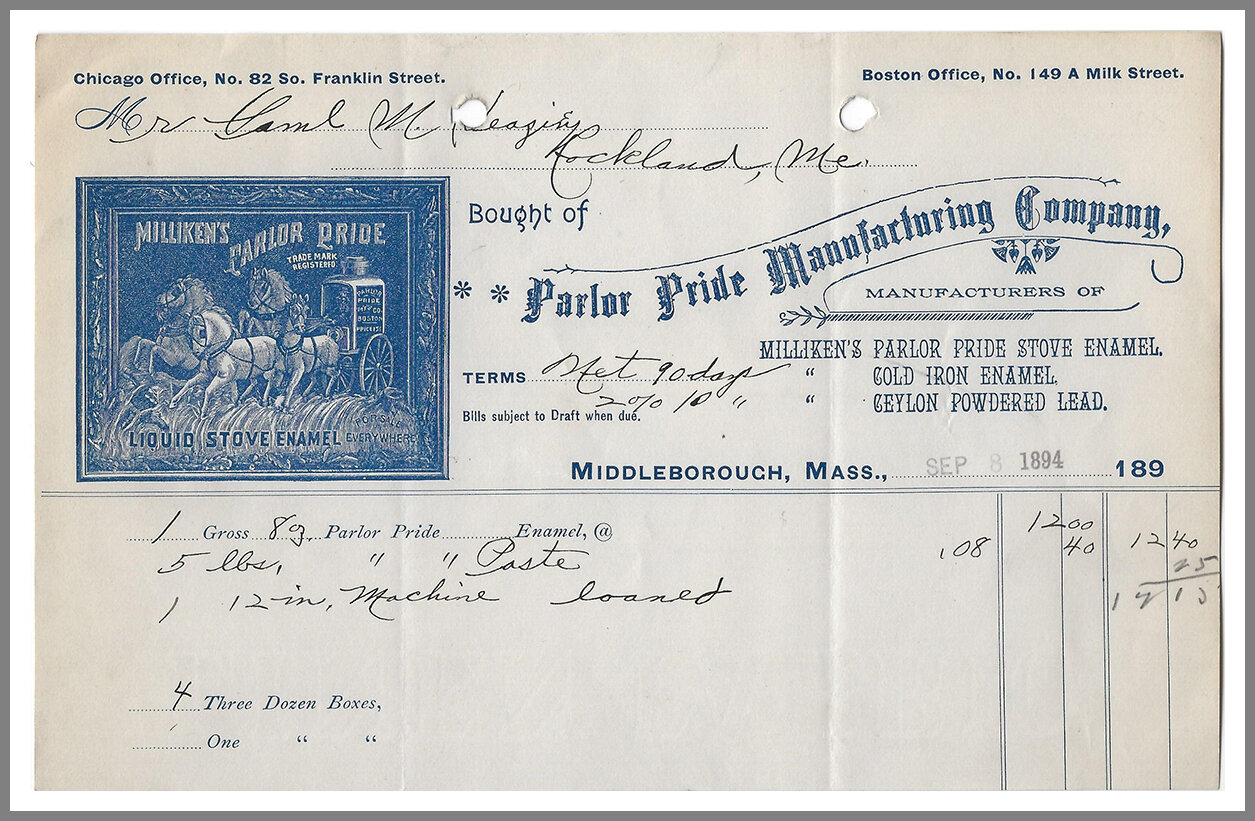 Chicago Office, No. 82 So. Franklin Street.
Boston Office, No. 149 A Milk Street.
Mr Saml M.
Rockland, Me.
MILLIKEN'S PARLOR PRIDE
TRADE MARK REGISTERED
PARLOR
PRIDE
M'F'G CO.
BOSTON
LIQUID STOVE ENAMEL
FOR SALE EVERYWHERE
Bought of
* * Parlor Pride Manufacturing Company,
MANUFACTURERS OF
MILLIKEN'S PARLOR PRIDE STOVE ENAMEL.
“ COLD IRON ENAMEL.
“ CEYLON POWDERED LEAD.
TERMS Net 90 days
2% 10 "
Bills subject to Draft when due.
MIDDLEBOROUGH, MASS., SEP 8 1894 189
1 Gross 8 oz. Parlor Pride Enamel, @ 12 00
5 lbs, " " Paste .08 40 12 40
25
1 12 in. Machine loaned 12 15
4 Three Dozen Boxes,
One “ “